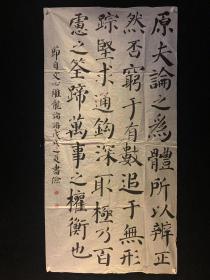 原夫論之為體所以辨正
然否窮于有數追于無形
踪堅求通鈎深取極乃百
慮之筌蹄萬事之權衡也
節自文心雕龍論語戊戌夏書